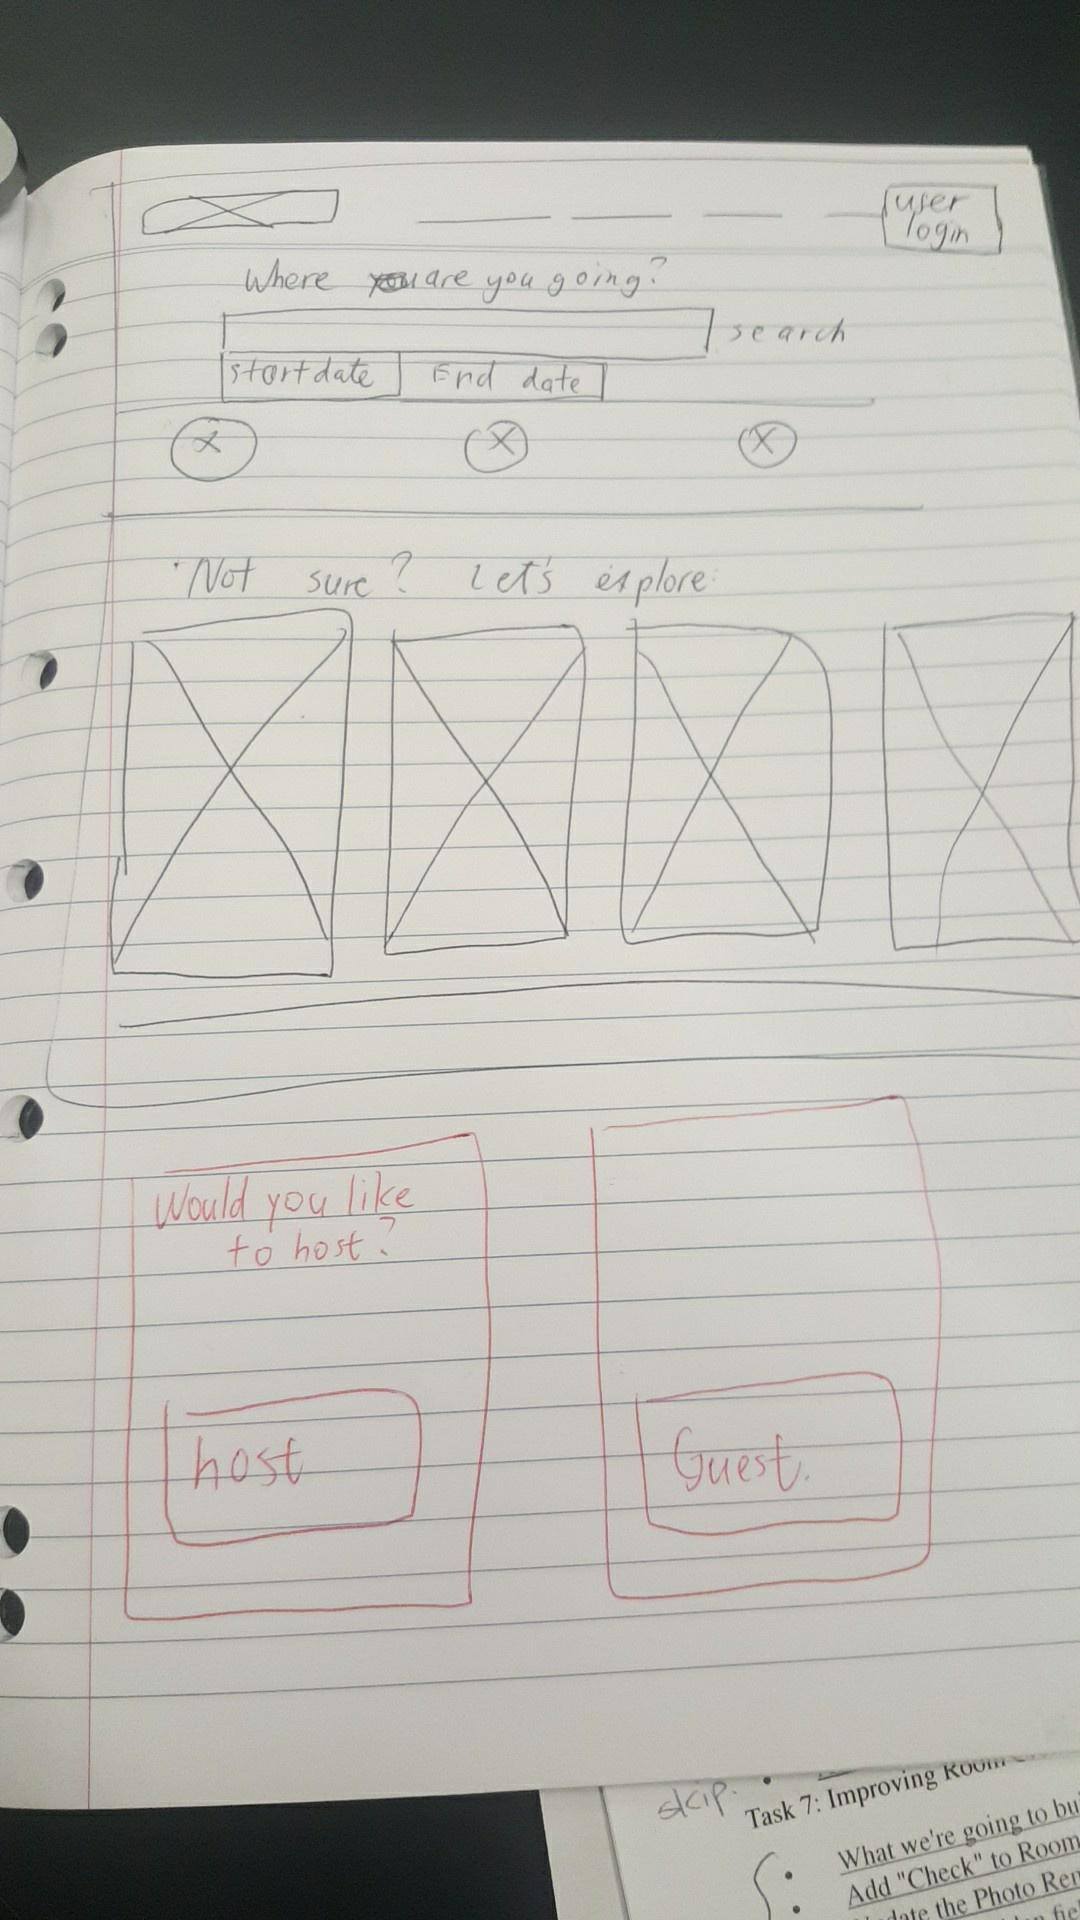 user
login
Where are you going?
search
start date End date
X X X
Not sure? Let's explore:
Would you like
to host?
host
Guest.
skip.
Task 7: Improving Room
What we're going to bu
Add "Check" to Room
date the Photo Ren